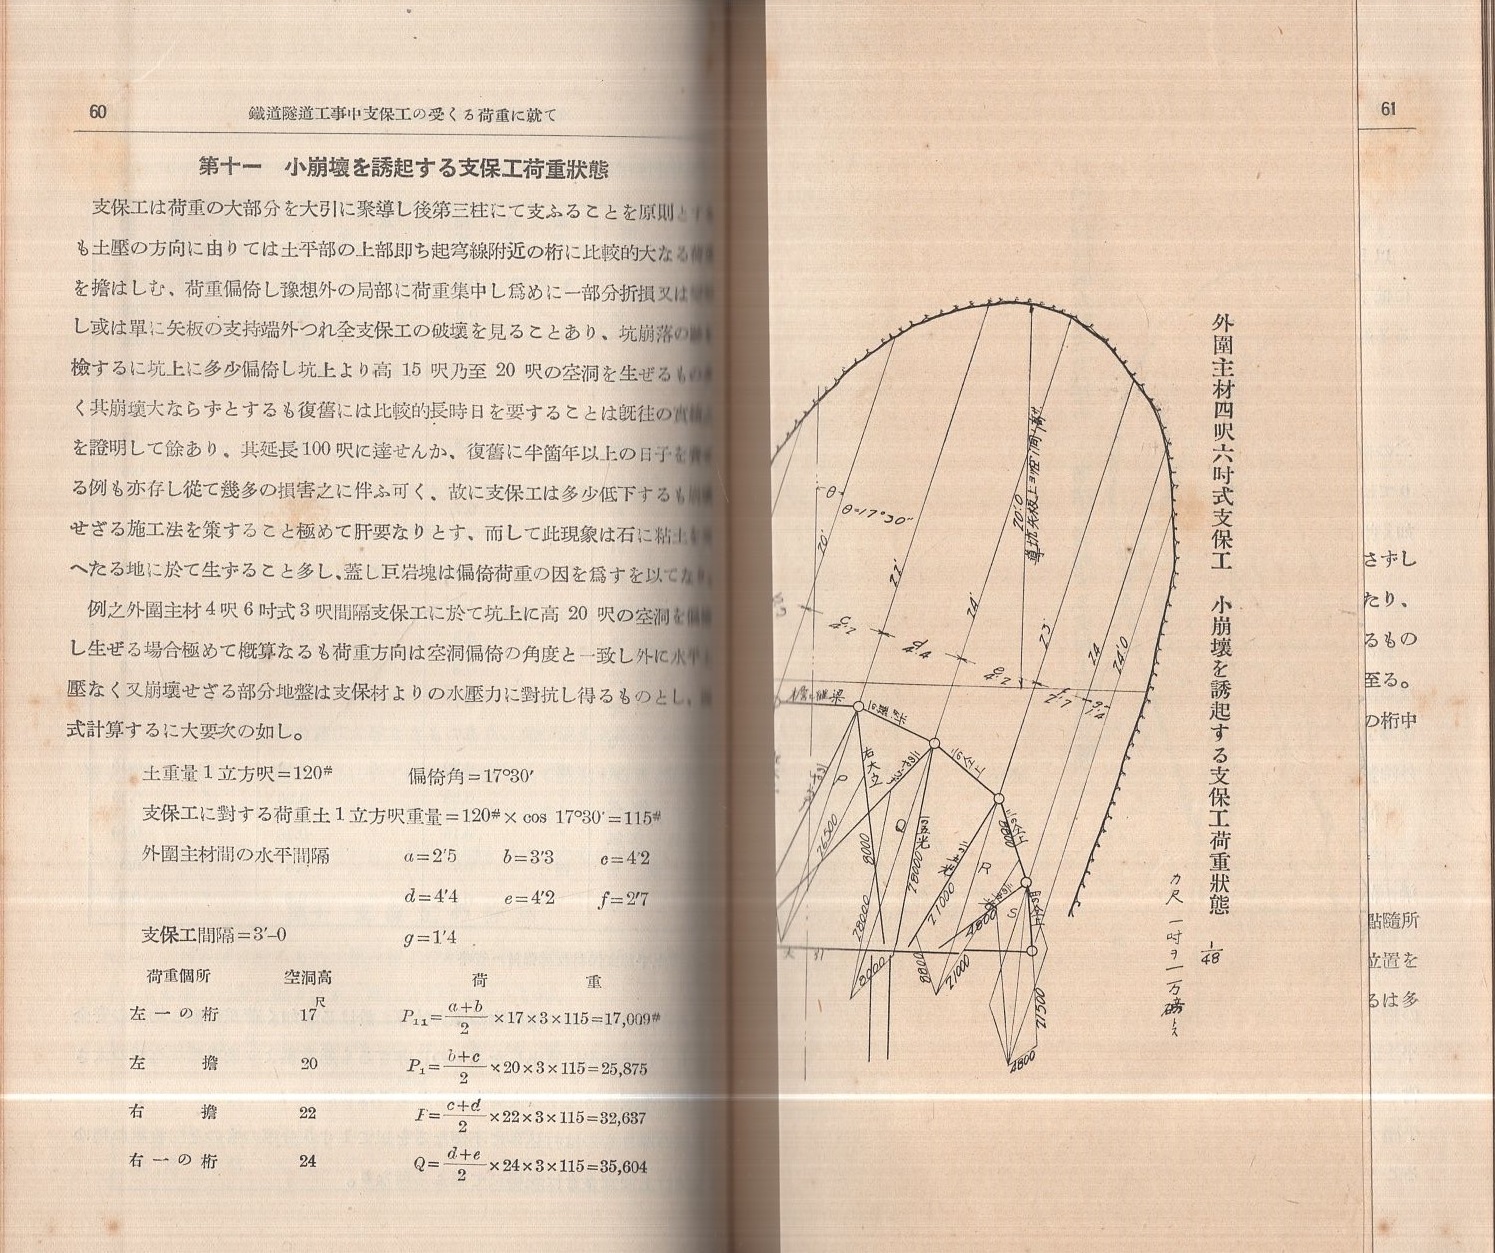 60
鐵道隧道工事中支保工の受くる荷重に就て
第十一 小崩壞を誘起する支保工荷重狀態
支保工は荷重の大部分を大引に聚導し後第三柱にて支ふることを原則と
も土壓の方向に由りては土平部の上部即ち起穹線附近の桁に比較的大なる
を擔はしむ、荷重偏倚し豫想外の局部に荷重集中し爲めに一部分折損又は
し或は單に矢板の支持端外つれ全支保工の破壞を見ることあり、坑崩落の
檢するに坑上に多少偏倚し坑上より高 15 呎乃至 20 呎の空洞を生ぜるもの
く其崩壞大ならずとするも復舊には比較的長時日を要することは旣往の實
を證明して餘あり、其延長100呎に達せんか、復舊に半箇年以上の日子を
る例も亦存し從て幾多の損害之に伴ふ可く、故に支保工は多少低下するも
せざる施工法を策すること極めて肝要なりとす、而して此現象は石に粘土を
へたる地に於て生ずること多し、蓋し巨岩塊は偏倚荷重の因を爲すを以てなり
例之外圍主材4呎6吋式3呎間隔支保工に於て坑上に高 20 呎の空洞を偏
し生ぜる場合極めて槪算なるも荷重方向は空洞偏倚の角度と一致し外に水平
壓なく又崩壞せざる部分地盤は支保材よりの水壓力に對抗し得るものとし、
式計算するに大要次の如し。
土重量1立方呎=120# 偏倚角=17°30′
支保工に對する荷重土1立方呎重量=120#×cos 17°30′=115#
外圍主材間の水平間隔 a=2′5 b=3′3 c=4′2
d=4′4 e=4′2 f=2′7
支保工間隔=3′-0 g=1′4
荷重個所 空洞高 荷重
左一の桁 17尺 P₁₁=(a+b)/2×17×3×115=17,009#
左擔 20 P₁=(b+c)/2×20×3×115=25,875
右擔 22 P=(c+d)/2×22×3×115=32,637
右一の桁 24 Q=(d+e)/2×24×3×115=35,604
61
外圍主材四呎六吋式支保工 小崩壞を誘起する支保工荷重狀態 1/48
力尺 一吋ヲ一万磅トス
θ
θ=17°30″
20′
22′
24′
20′.0
23′
24
24′.0
d 4.4
e 4.2
f 2.7
g 1.4
P
Q
R
S
26500
8000
28000
28000
21000
8800
4800
8000
8800
21000
21500
4800
さずし
たり、
るもの
至る。
の桁中
點隨所
位置を
るは多